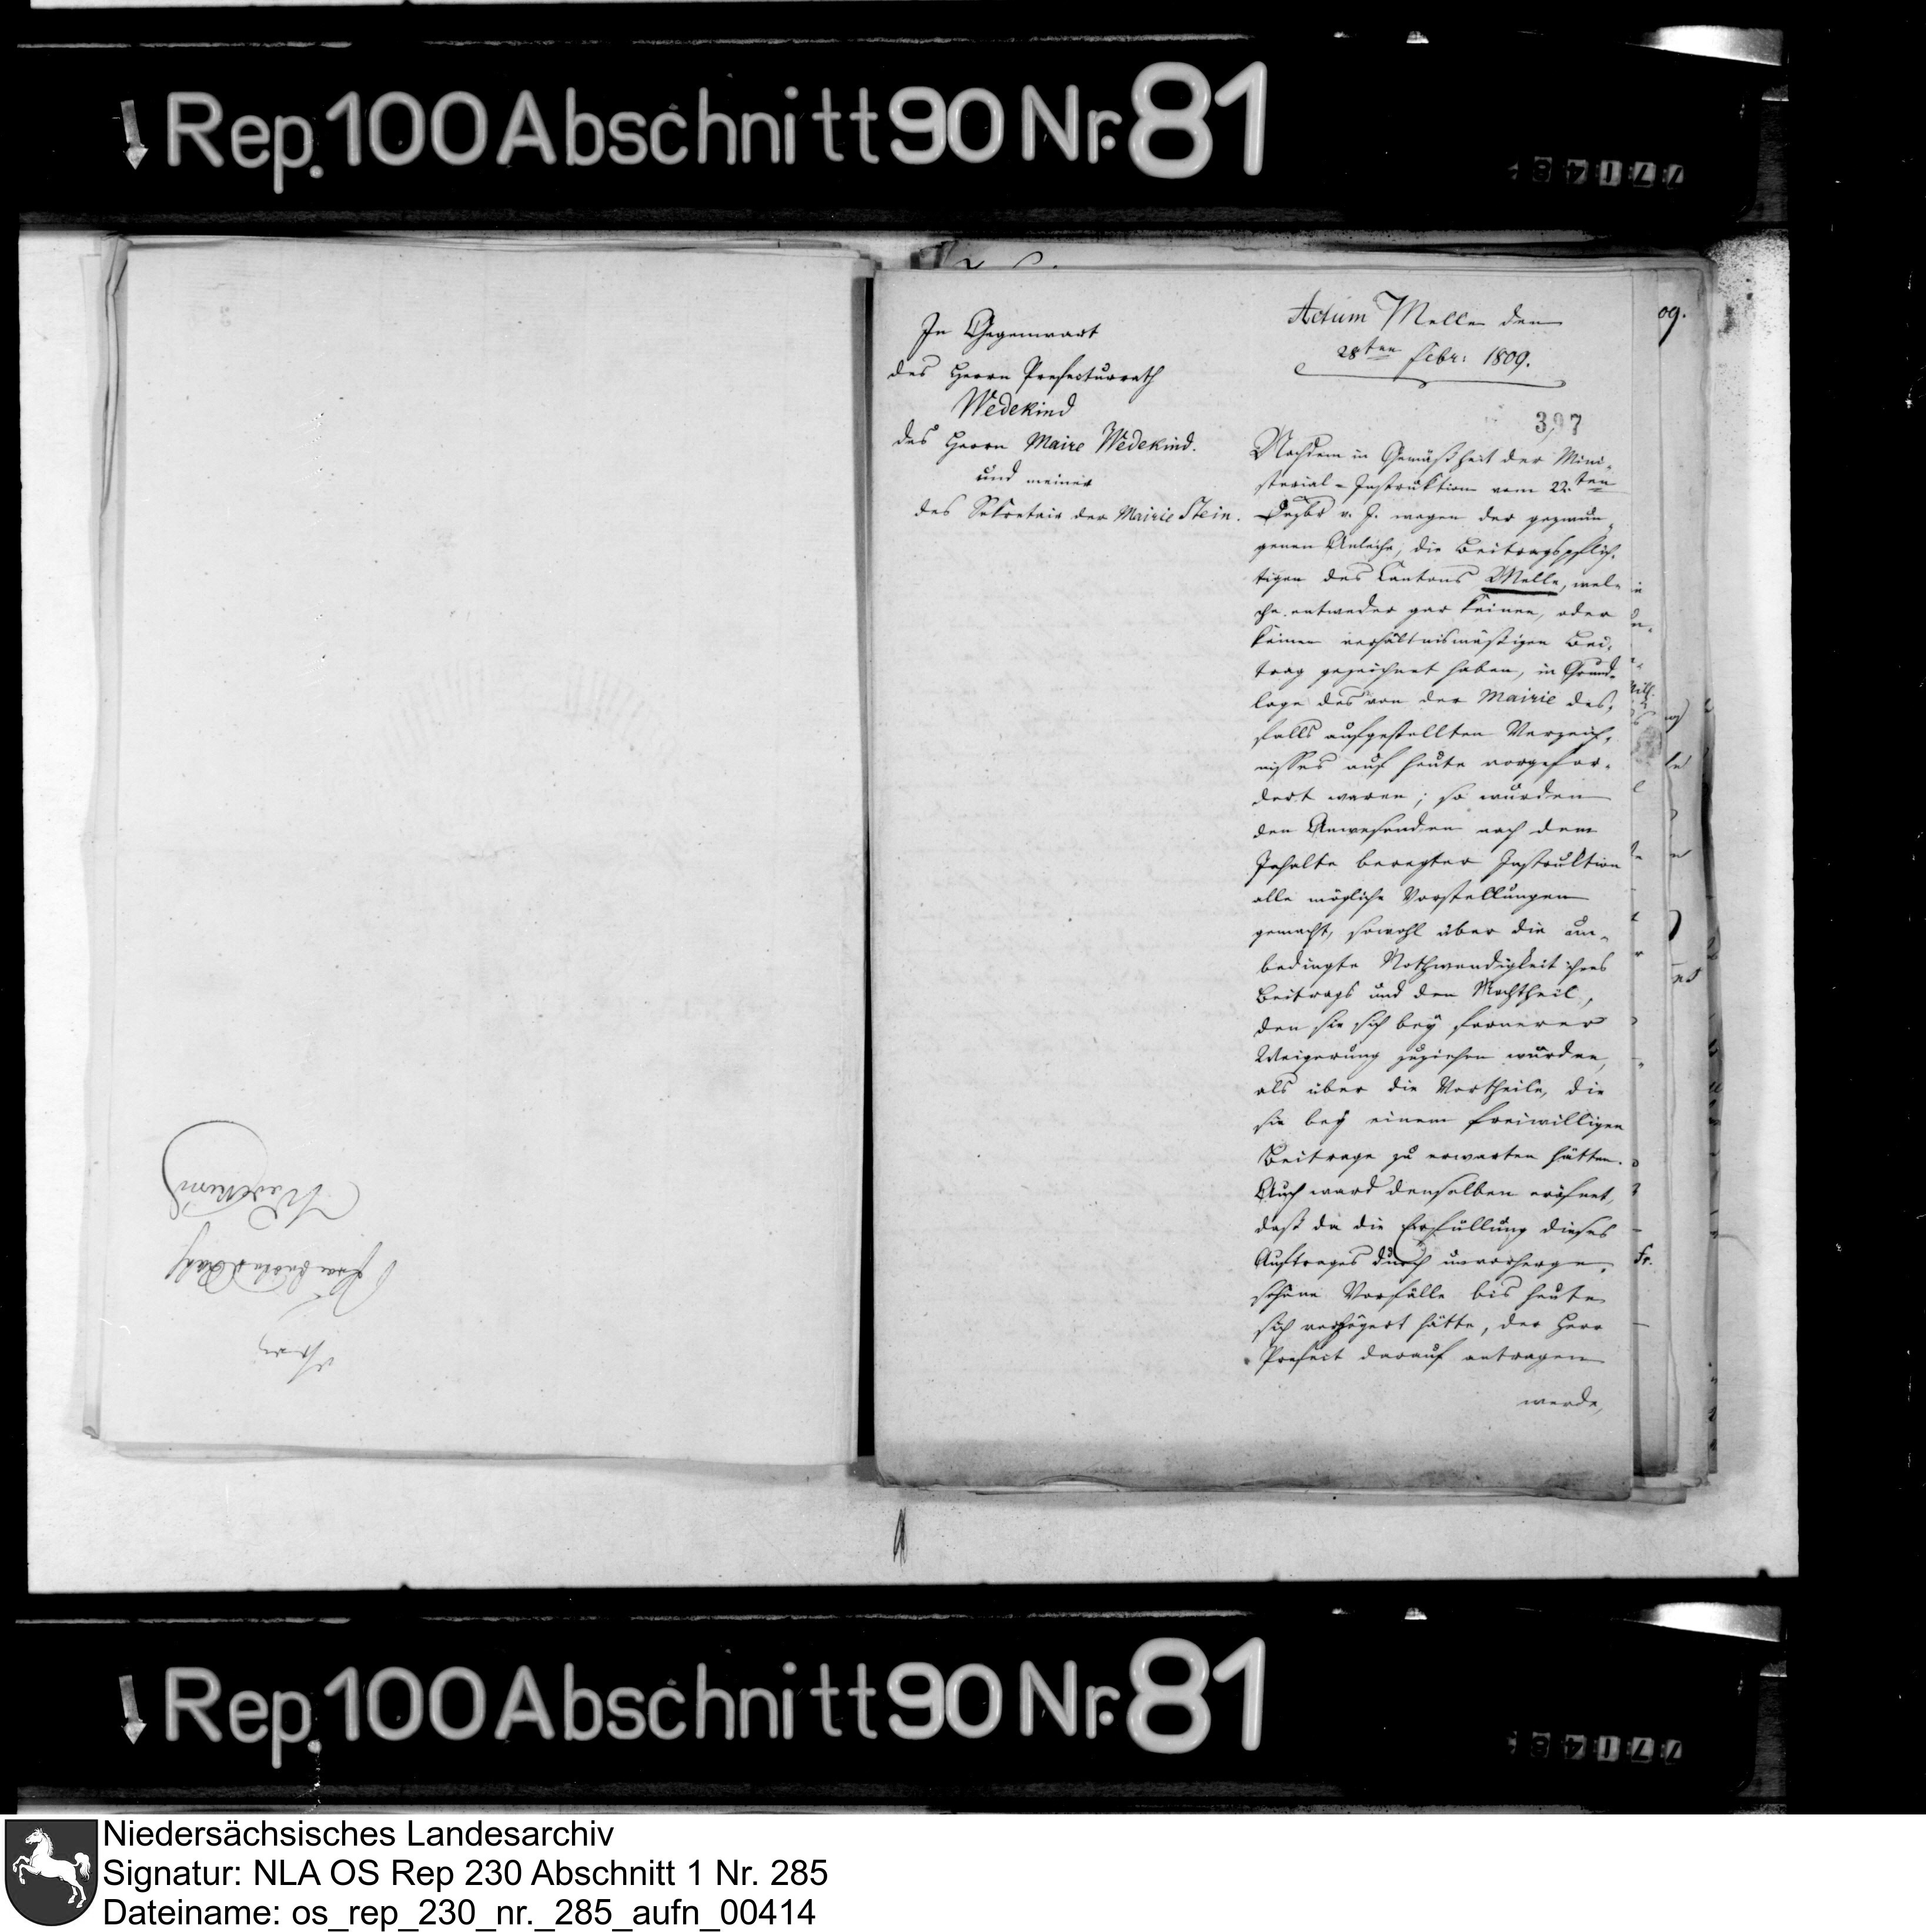 Rep. 100 Abschnitt 90 Nr. 81
Actum Melle den
28ten Febr: 1809.
397
In Gegenwart
des Herrn Prefecturrath
Wedekind
des Herrn Maire Wedekind.
und meiner
des Sekretair der Mairie Stein.
Nachdem in Gemäßheit der Mini-
sterial-Instruktion vom 22ten
Dezbr v. J. wegen der gezwun-
genen Anleihe, die Beitragspflich-
tigen des Cantons Melle, wel-
che entweder gar keinen, oder
keinen verhältnismäßigen Bei-
trag gezeichnet haben, in Grund-
lage des von der Mairie des-
falls aufgestellten Verzeich-
nisses auf heute vorgefor-
dert waren; so wurden
den Anwesenden nach dem
Inhalte beregter Instruktion
alle mögliche Vorstellungen
gemacht, sowohl über die un-
bedingte Nothwendigkeit ihres
Beitrags und den Nachtheil,
den sie sich bey fernerer
Weigerung zuziehen würden,
als über die Vortheile, die
sie bey einem freiwilligen
Beitrage zu erwarten hätten.
Auch ward denselben eröfnet,
daß da die Erfüllung dieses
Auftrages durch unvorherge-
sehene Vorfälle bis heute
sich verzögert hätte, der Herr
Prefect darauf antragen
werde,
09.
Fr.
Wedekind
Rep. 100 Abschnitt 90 Nr. 81
Niedersächsisches Landesarchiv
Signatur: NLA OS Rep 230 Abschnitt 1 Nr. 285
Dateiname: os_rep_230_nr._285_aufn_00414